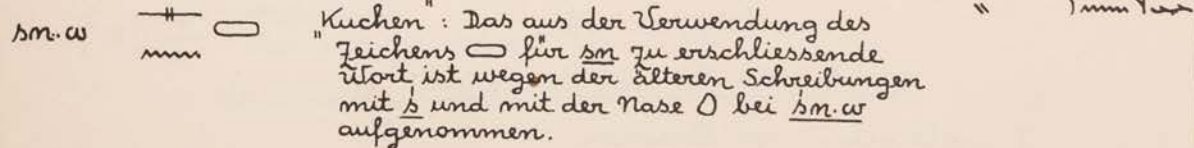 sn.w 𓊃𓈖 𓏙 „Kuchen“: Das aus der Verwendung des
Zeichens ⬭ für sn zu erschliessende
Wort ist wegen der älteren Schreibungen
mit ś und mit der Nase bei śn.w
aufgenommen.